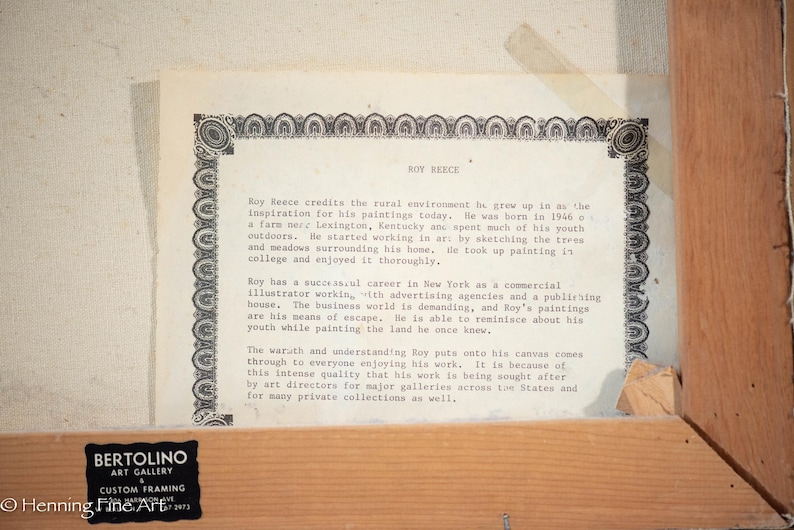 ROY REECE
Roy Reece credits the rural environment he grew up in as the
inspiration for his paintings today. He was born in 1946 o
a farm near Lexington, Kentucky and spent much of his youth
outdoors. He started working in art by sketching the trees
and meadows surrounding his home. He took up painting in
college and enjoyed it thoroughly.
Roy has a successful career in New York as a commercial
illustrator working with advertising agencies and a publishing
house. The business world is demanding, and Roy's paintings
are his means of escape. He is able to reminisce about his
youth while painting the land he once knew.
The warmth and understanding Roy puts onto his canvas comes
through to everyone enjoying his work. It is because of
this intense quality that his work is being sought after
by art directors for major galleries across the States and
for many private collections as well.
BERTOLINO
ART GALLERY
&
CUSTOM FRAMING
HARRISON AVE.
7-2973
© Henning Fine Art